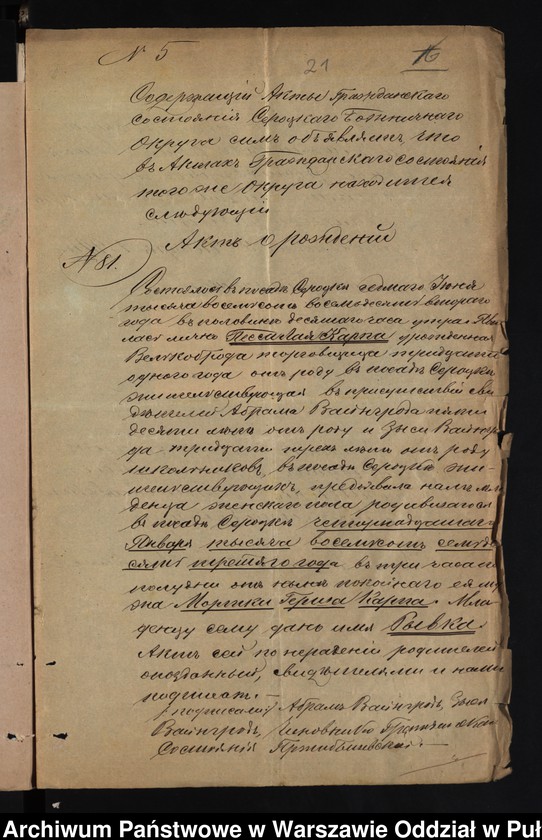 N 5
21
16
Содержащій Акты Гражданскаго
состоянія Сероцкаго Божничнаго
Округа симъ объявляетъ, что
въ Актахъ Гражданскаго состоянія
того же Округа находится
слѣдующій
Актъ о рожденіи
N 81.
Состоялось въ посадѣ Сероцкѣ седмаго Іюня
тысяча восемьсотъ восемьдесятъ втораго
года въ половинѣ десятаго часа утра. Яви
лась лично Карпа урожденная
Велькоброда торговщица тридцати
одного года отъ роду въ посадѣ Сероцкѣ
жительствующая въ присутствіи сви
дѣтелей Абрама Вайнгрода пяти
десяти лѣтъ отъ роду и Зыси Вайнгро
да тридцати трехъ лѣтъ отъ роду
школьниковъ, въ посадѣ Сероцкѣ жи
тельствующихъ, предъявила намъ мла
денца женскаго пола родившагося
въ посадѣ Сероцкѣ четырнадцатаго
Января тысяча восемьсотъ семьде
сятъ третяго года въ три часа по
полудни отъ нынѣ покойнаго ея му
жа Моргки Герша Карпа. Мла
денцу сему дано имя Рывка.
Актъ сей по нерадѣнію родителей
опозданный, свидѣтелями и нами
подписанъ. —
подписали: Абрамъ Вайнгродъ, Зыся
Вайнгродъ, Чиновникъ Гражданскаго
Состоянія —
Archiwum Państwowe w Warszawie Oddział w Puł